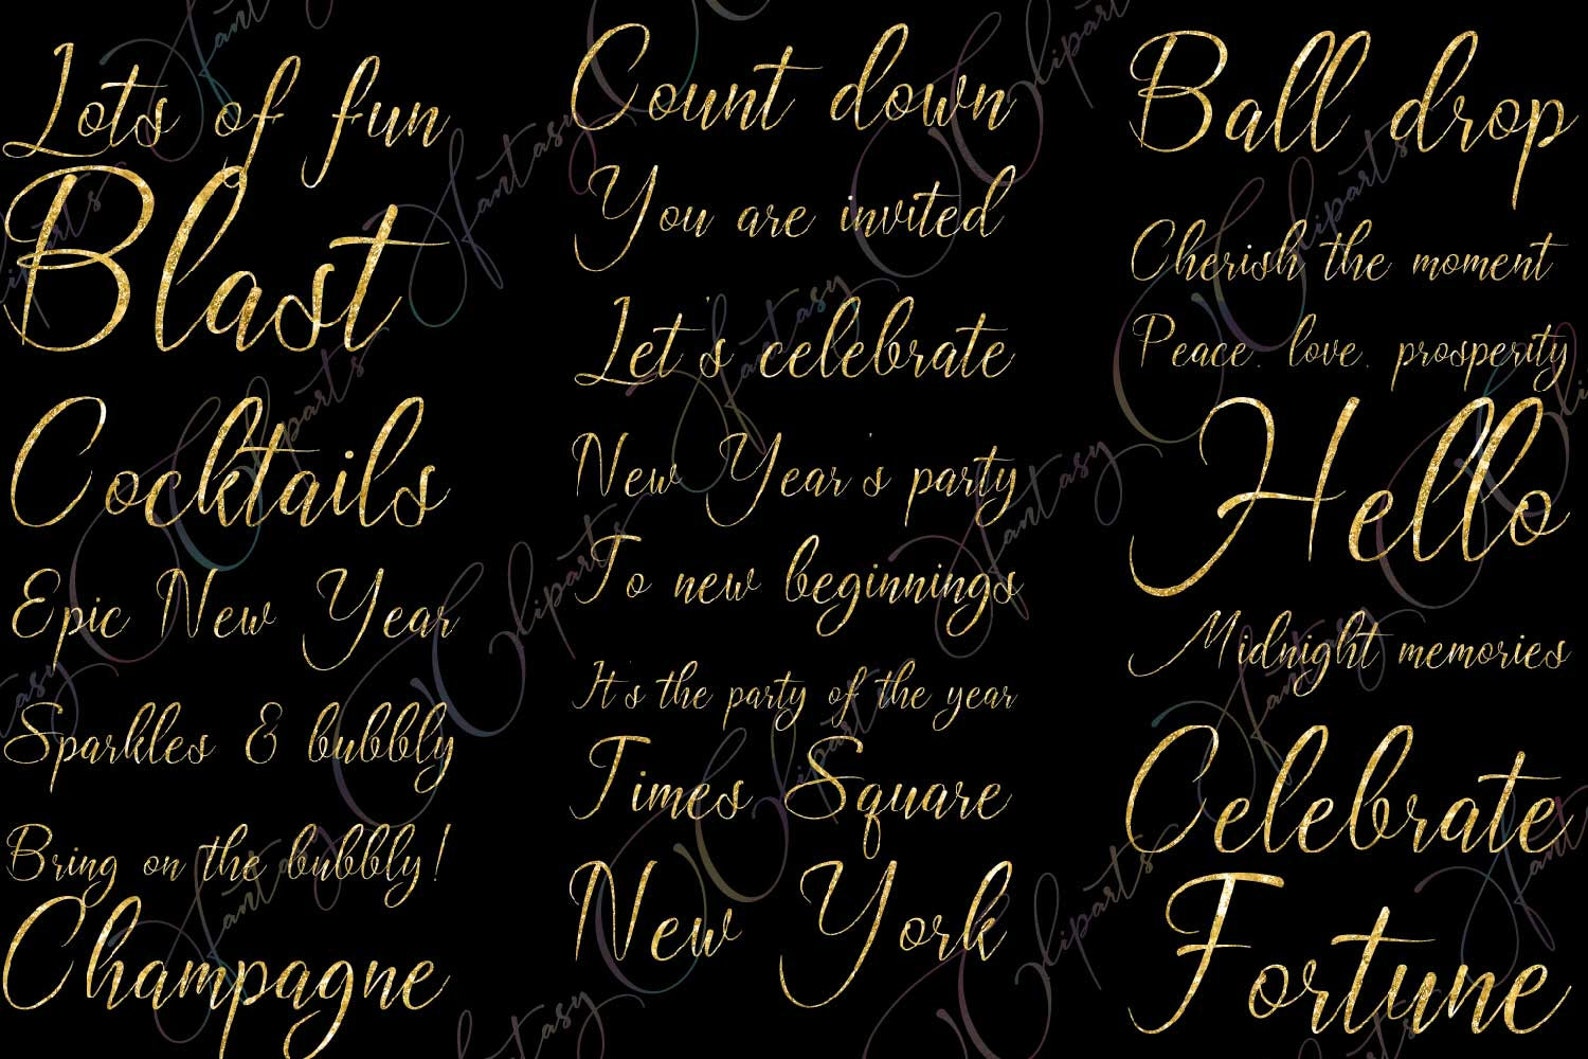 Lots of fun
Blast
Cocktails
Epic New Year
Sparkles & bubbly
Bring on the bubbly!
Champagne
Count down
You are invited
Let's celebrate
New Year's party
To new beginnings
It's the party of the year
Times Square
New York
Ball drop
Cherish the moment
Peace. love. prosperity
Hello
Midnight memories
Celebrate
Fortune
Fantasy Cliparts